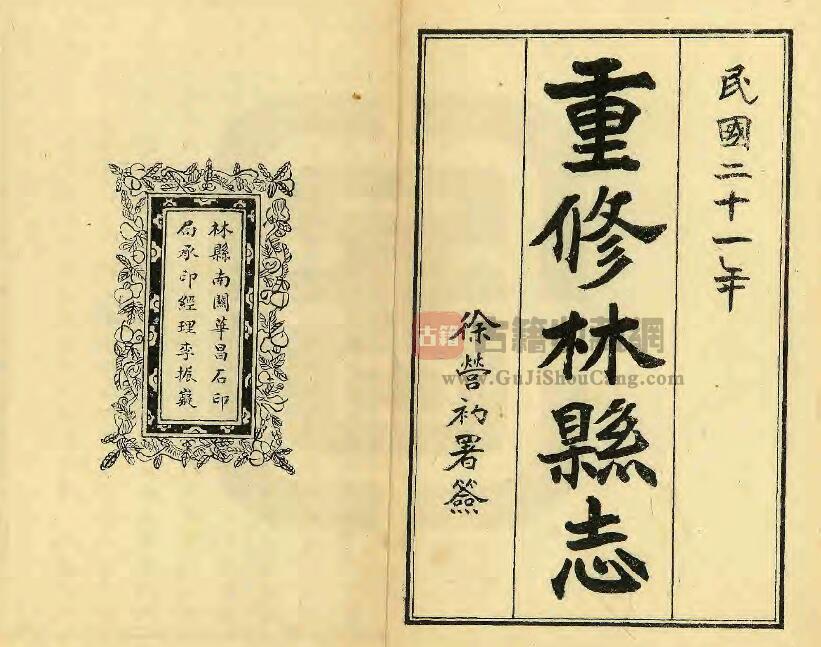 民國二十一年
重修林縣志
徐營礿署簽
林縣南關華昌石印
局承印經理李振嶷
古籍
www.GuJiShouCang.com